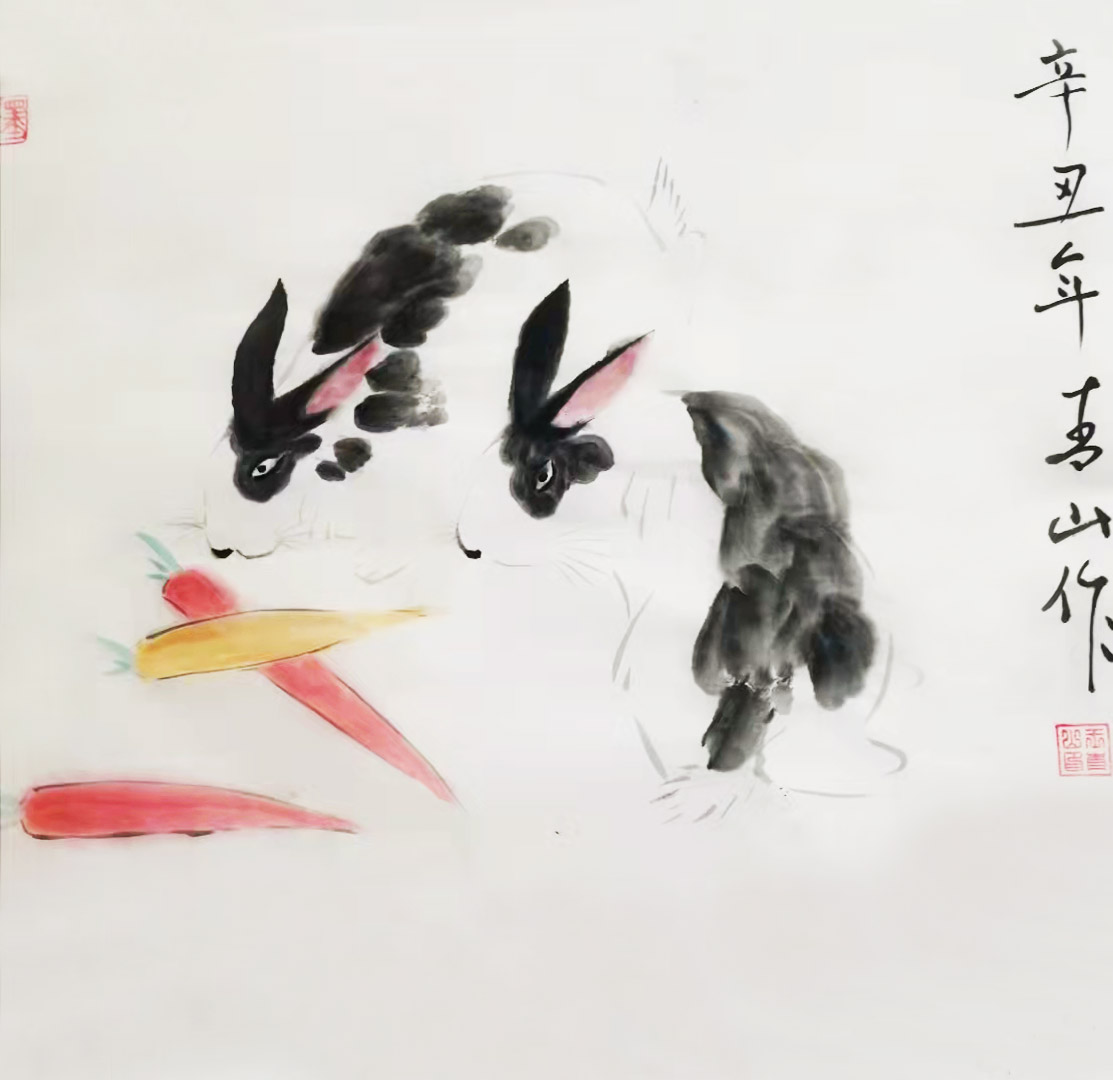 辛丑年青山作